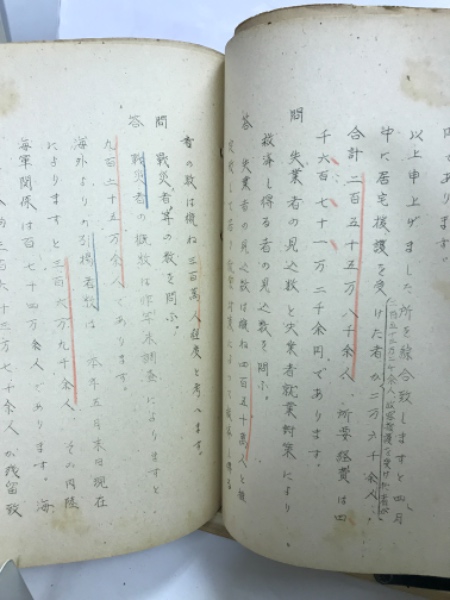 円であります。
以上申上げました所を綜合致しますと四月
中に居宅援護を受けた者が二万六千余人、
合計二百五十五万八千余人、所要経費は四
千六百七十一万二千余円であります。
問 失業者の見込数と失業者就業対策により
救済し得る者の見込数を問ふ。
答 失業者の見込数は概ね四百五十万人と推
定致して居り就業対策によつて救済し得る
者の数は概ね三百万人程度と考へます。
問 戦災者等の数を問ふ。
答 戦災者の概数は昨年末調査によりますと
九百二十五万余人であります。
海外よりの引揚者数は 本年五月末日現在
によりますと三百六万九千余人、その内陸
海軍関係は百七十四万余人であります。海
三百六十三万七千余人が残留致